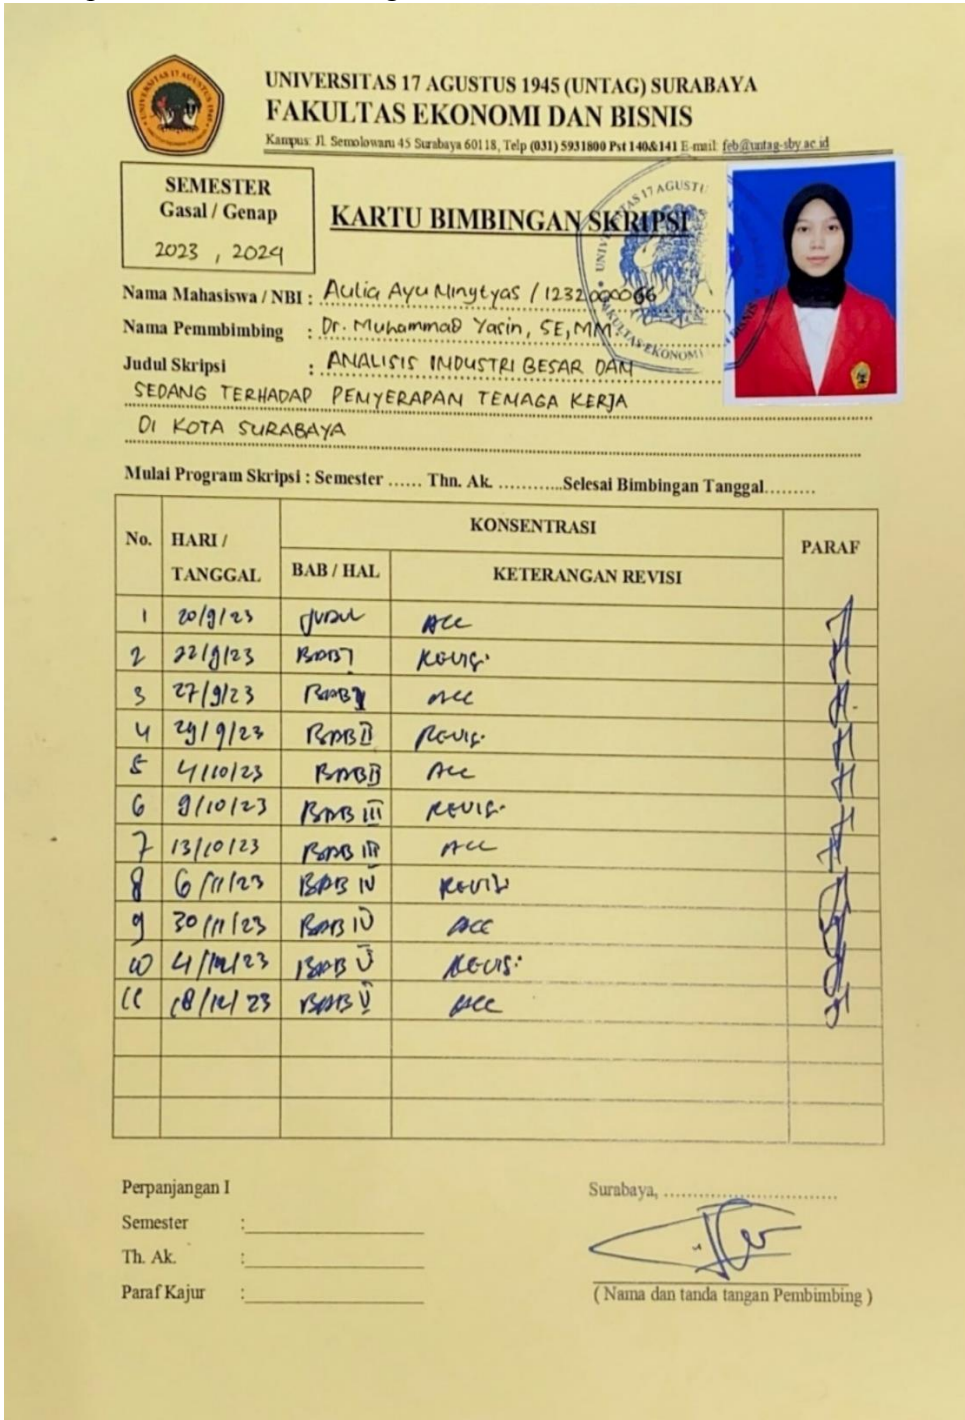 UNIVERSITAS 17 AGUSTUS 1945 (UNTAG) SURABAYA
FAKULTAS EKONOMI DAN BISNIS
Kampus: Jl. Semolowaru 45 Surabaya 60118, Telp (031) 5931800 Pst 140&141 E-mail: feb@untag-sby.ac.id
SEMESTER
Gasal / Genap
2023 , 2024
KARTU BIMBINGAN SKRIPSI
Nama Mahasiswa / NBI : Aulia Ayu Ningtyas / 1232000066
Nama Pemmbimbing : Dr. Muhammad Yasin, SE, MM
Judul Skripsi : ANALISIS INDUSTRI BESAR DAN
SEDANG TERHADAP PENYERAPAN TENAGA KERJA
DI KOTA SURABAYA
Mulai Program Skripsi : Semester ...... Thn. Ak. ............Selesai Bimbingan Tanggal.........
No. HARI / TANGGAL KONSENTRASI PARAF
BAB / HAL KETERANGAN REVISI
1 20/9/23 Judul ACC
2 22/9/23 BAB I Revisi
3 27/9/23 BAB I ACC
4 29/9/23 BAB II Revisi
5 4/10/23 BAB II ACC
6 9/10/23 BAB III Revisi
7 13/10/23 BAB III ACC
8 6/11/23 BAB IV Revisi
9 30/11/23 BAB IV ACC
10 4/12/23 BAB V Revisi
11 18/12/23 BAB V ACC
Perpanjangan I
Semester :
Th. Ak. :
Paraf Kajur :
Surabaya, ..............................
( Nama dan tanda tangan Pembimbing )